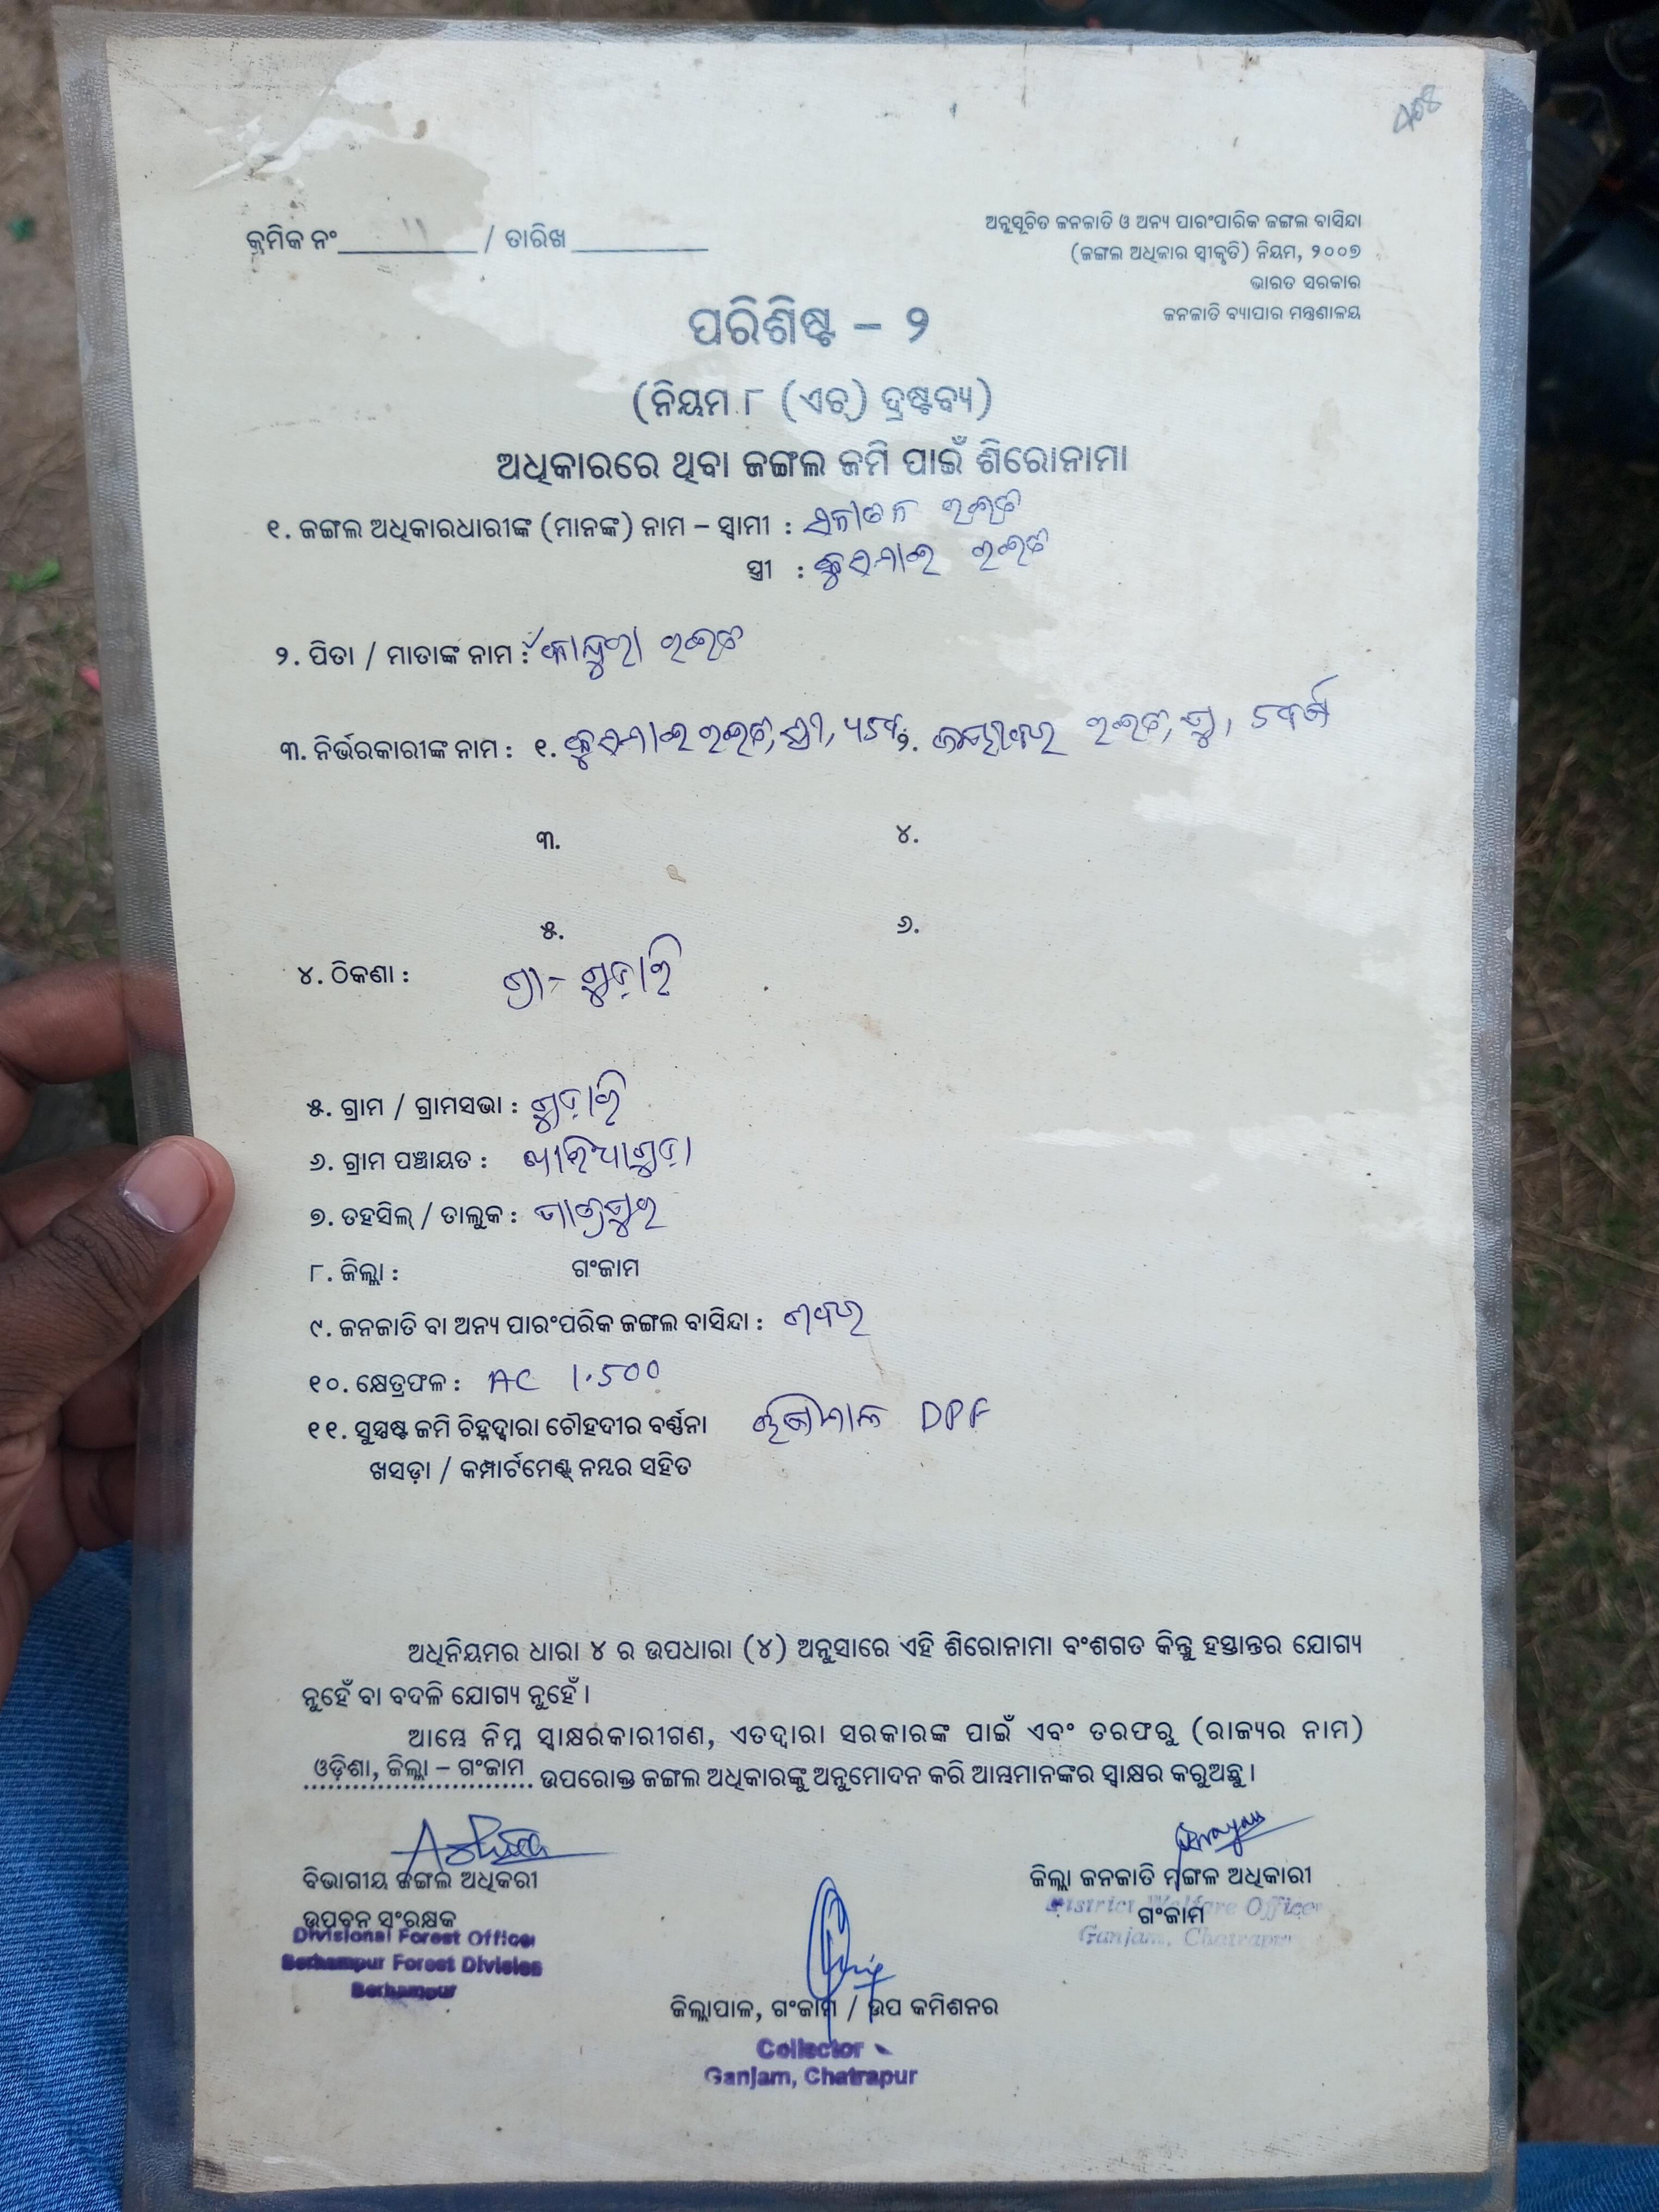 408
ଅନୁସୂଚିତ ଜନଜାତି ଓ ଅନ୍ୟ ପାରଂପାରିକ ଜଙ୍ଗଲ ବାସିନ୍ଦା
କ୍ରମିକ ନଂ __________ / ତାରିଖ __________
(ଜଙ୍ଗଲ ଅଧିକାର ସ୍ୱୀକୃତି) ନିୟମ, ୨୦୦୭
ଭାରତ ସରକାର
ଜନଜାତି ବ୍ୟାପାର ମନ୍ତ୍ରଣାଳୟ
ପରିଶିଷ୍ଟ – ୨
(ନିୟମ ୮ (ଏଚ୍) ଦ୍ରଷ୍ଟବ୍ୟ)
ଅଧିକାରରେ ଥିବା ଜଙ୍ଗଲ ଜମି ପାଇଁ ଶିରୋନାମା
୧. ଜଙ୍ଗଲ ଅଧିକାରଧାରୀଙ୍କ (ମାନଙ୍କ) ନାମ – ସ୍ୱାମୀ : ରଇତ
ସ୍ତ୍ରୀ : ରଇତ
୨. ପିତା / ମାତାଙ୍କ ନାମ : ରଇତ
୩. ନିର୍ଭରକାରୀଙ୍କ ନାମ : ୧. ରଇତ, ସ୍ତ୍ରୀ, ୨. ରଇତ, ପୁ, ୫ବର୍ଷ
୩. ୪.
୫. ୬.
୪. ଠିକଣା : ଗ୍ରା-
୫. ଗ୍ରାମ / ଗ୍ରାମସଭା :
୬. ଗ୍ରାମ ପଞ୍ଚାୟତ :
୭. ତହସିଲ୍ / ତାଲୁକ :
୮. ଜିଲ୍ଲା : ଗଂଜାମ
୯. ଜନଜାତି ବା ଅନ୍ୟ ପାରଂପରିକ ଜଙ୍ଗଲ ବାସିନ୍ଦା : ଶବର
୧୦. କ୍ଷେତ୍ରଫଳ : AC 1.500
୧୧. ସୁସ୍ପଷ୍ଟ ଜମି ଚିହ୍ନଦ୍ୱାରା ଚୌହଦୀର ବର୍ଣ୍ଣନା DPF
ଖସଡ଼ା / କମ୍ପାର୍ଟମେଣ୍ଟ୍ ନମ୍ବର ସହିତ
ଅଧିନିୟମର ଧାରା ୪ ର ଉପଧାରା (୪) ଅନୁସାରେ ଏହି ଶିରୋନାମା ବଂଶଗତ କିନ୍ତୁ ହସ୍ତାନ୍ତର ଯୋଗ୍ୟ
ନୁହେଁ ବା ବଦଳି ଯୋଗ୍ୟ ନୁହେଁ ।
ଆମ୍ଭେ ନିମ୍ନ ସ୍ୱାକ୍ଷରକାରୀଗଣ, ଏତଦ୍ୱାରା ସରକାରଙ୍କ ପାଇଁ ଏବଂ ତରଫରୁ (ରାଜ୍ୟର ନାମ)
ଓଡ଼ିଶା, ଜିଲ୍ଲା – ଗଂଜାମ ଉପରୋକ୍ତ ଜଙ୍ଗଲ ଅଧିକାରଙ୍କୁ ଅନୁମୋଦନ କରି ଆମ୍ଭମାନଙ୍କର ସ୍ୱାକ୍ଷର କରୁଅଛୁ ।
ବିଭାଗୀୟ ଜଙ୍ଗଲ ଅଧିକାରୀ
ଉପବନ ସଂରକ୍ଷକ
Divisional Forest Officer
Berhampur Forest Division
Berhampur
ଜିଲ୍ଲା ଜନଜାତି ମଙ୍ଗଳ ଅଧିକାରୀ
ଗଂଜାମ
District Welfare Officer
Ganjam, Chatrapur
ଜିଲ୍ଲାପାଳ, ଗଂଜାମ / ଉପ କମିଶନର
Collector
Ganjam, Chatrapur